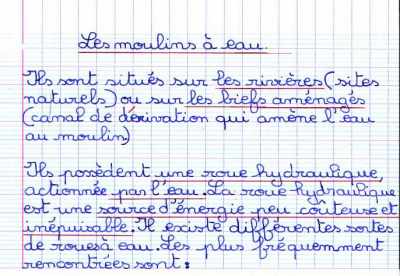 Les moulins à eau.
Ils sont situés sur les rivières (sites
naturels) ou sur les biefs aménagés
(canal de dérivation qui amène l'eau
au moulin)
Ils possèdent une roue hydraulique,
actionnée par l'eau. La roue hydraulique
est une source d'énergie peu coûteuse et
inépuisable. Il existe différentes sortes
de roues à eau. Les plus fréquemment
rencontrées sont :